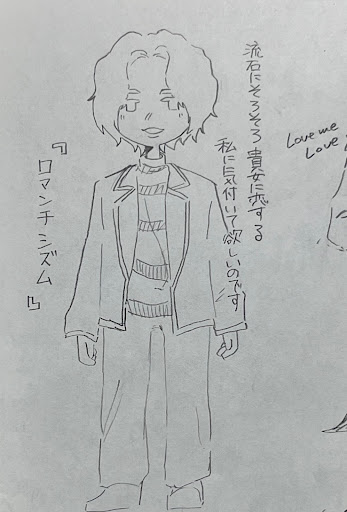 流石にそろそろ貴女に恋する
私に気付いて欲しいのです
『ロマンチシズム』
Love me
Love